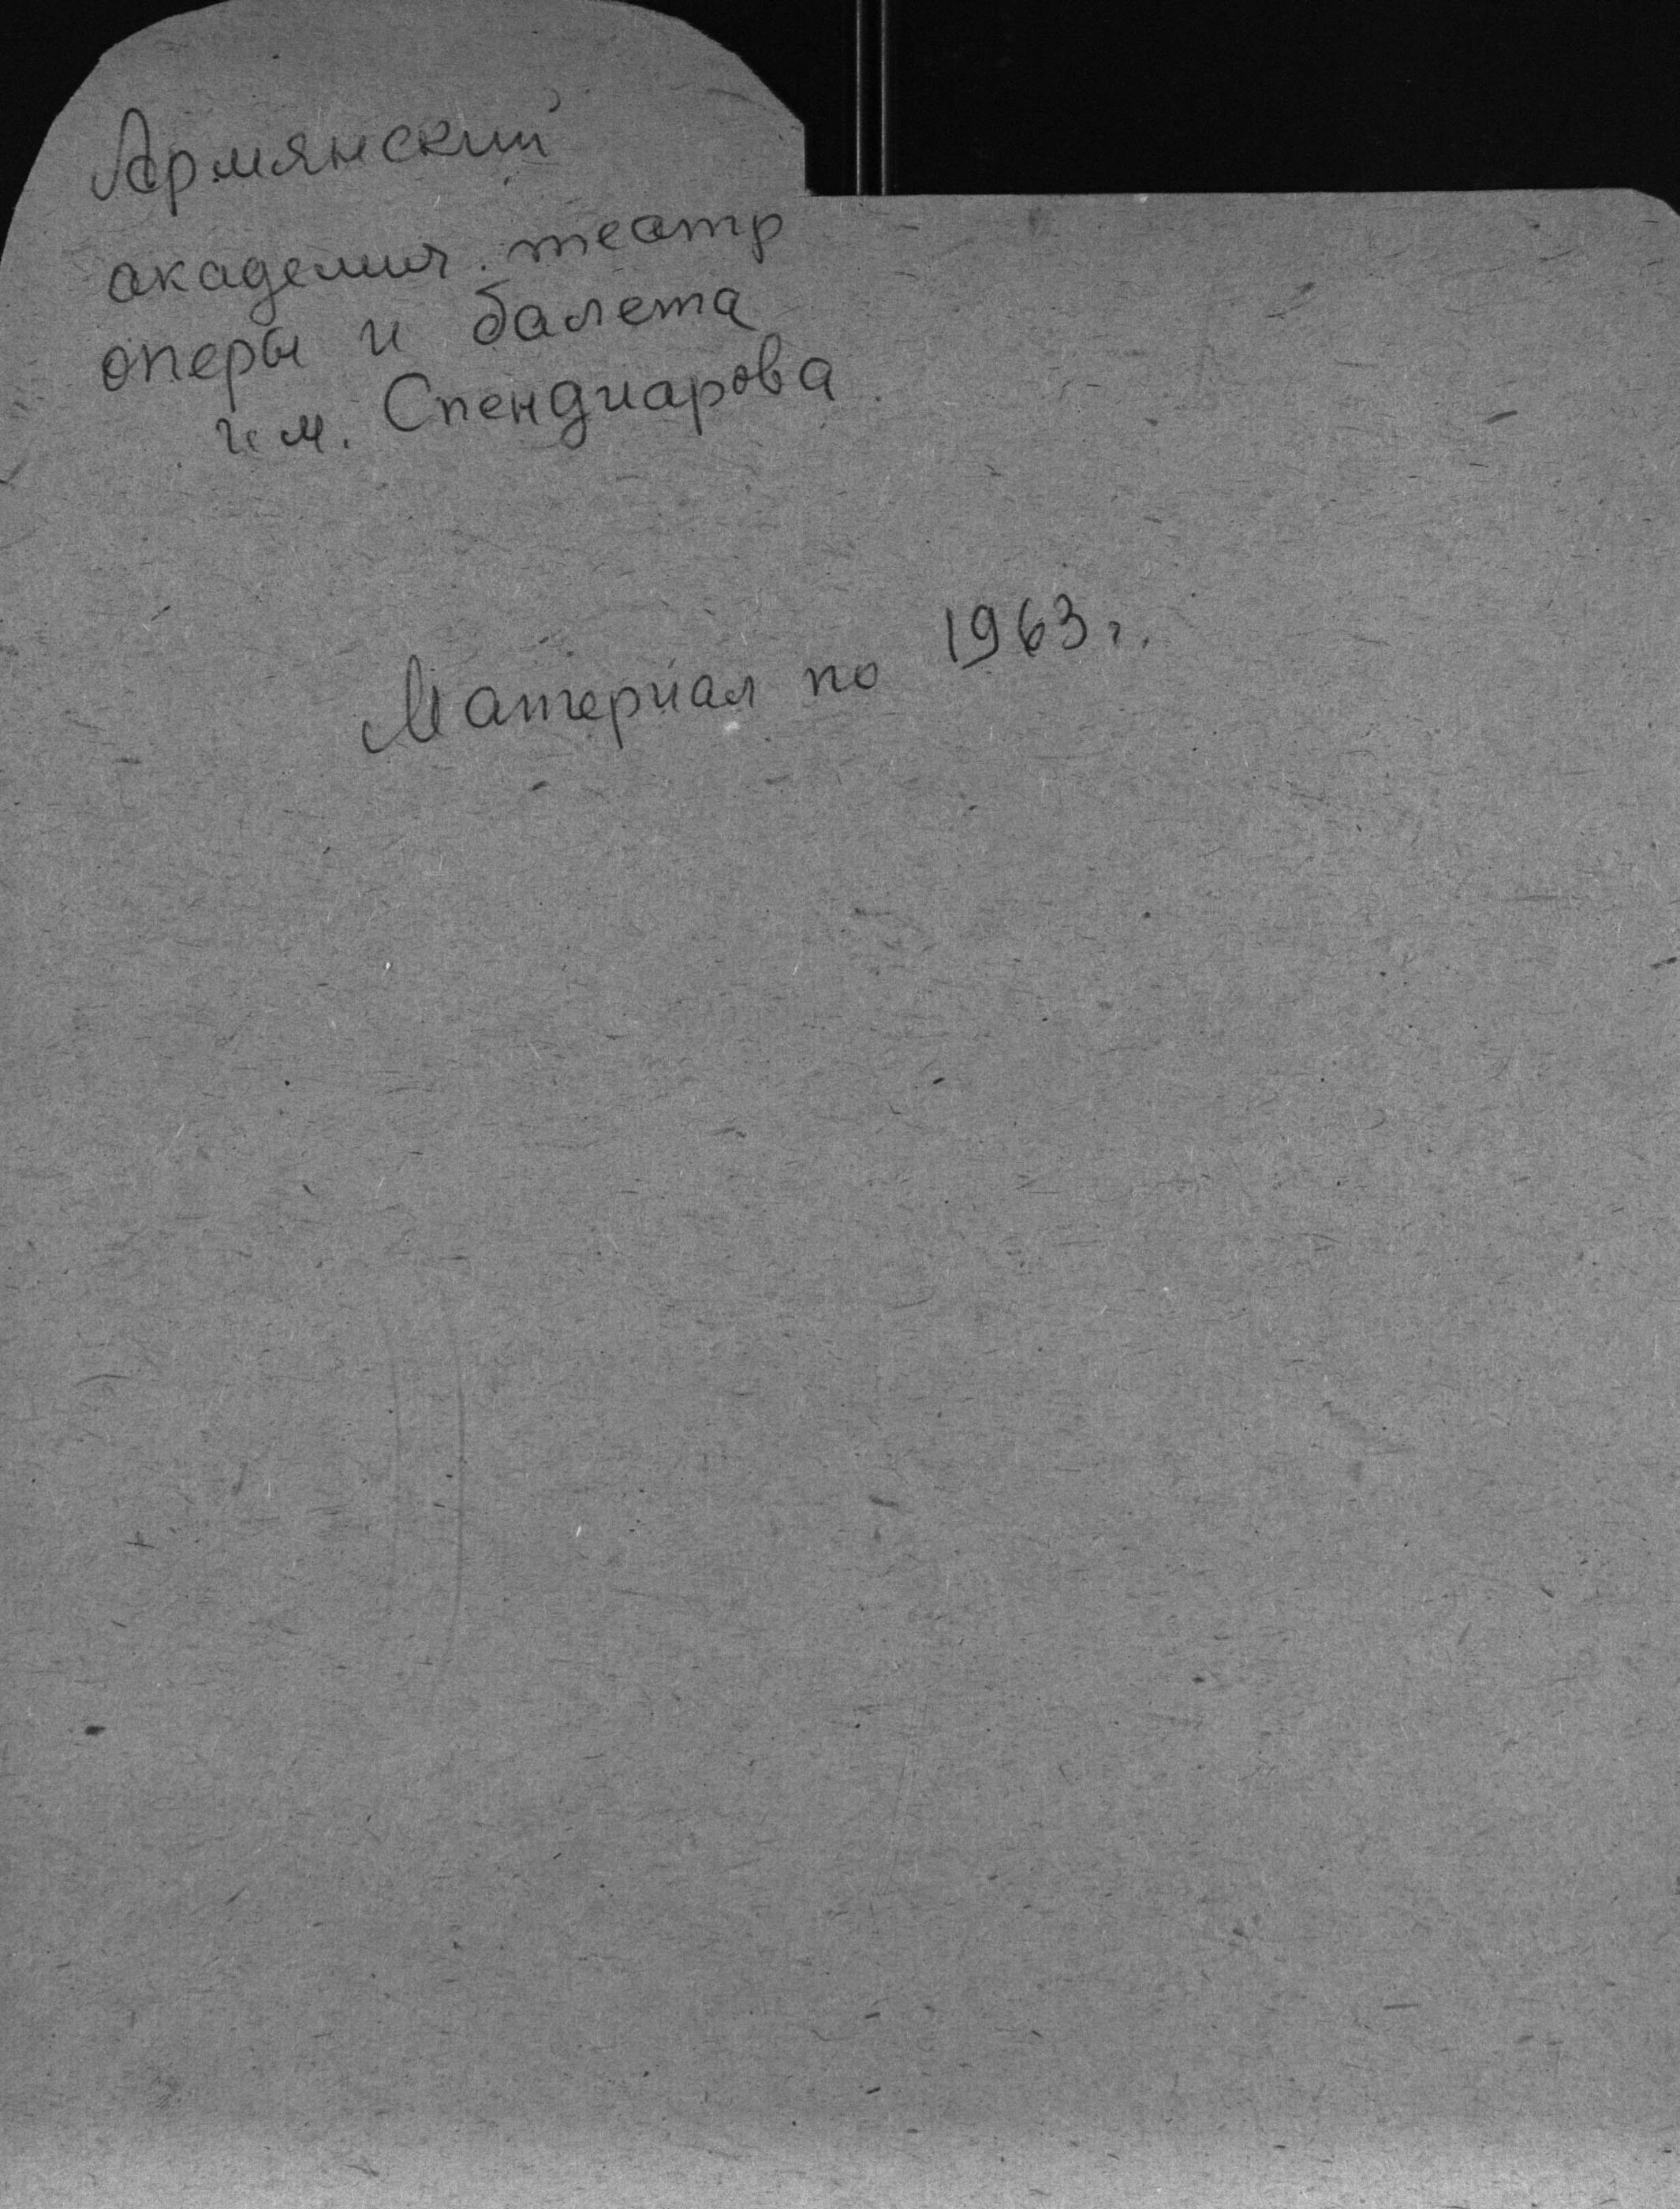 Армянский
академич. театр
оперы и балета
им. Спендиарова
Материал по 1963 г.